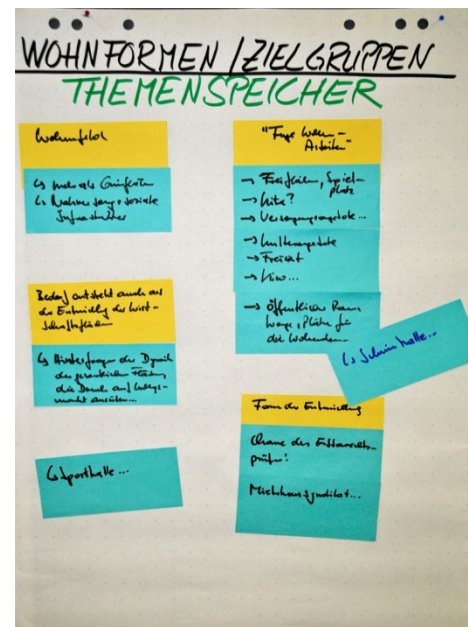 WOHNFORMEN / ZIELGRUPPEN
THEMENSPEICHER
Wohnumfeld
↳ mehr als Grünflächen
↳ Nahversorgung + soziale
Infrastruktur
Bedarf entsteht auch aus
der Entwicklung der Wirt-
schaftsflächen
↳ Hinterfragen der Dynamik
der gewerblichen Flächen,
die Druck auf Wohnungs-
markt ausüben...
↳ Sporthalle...
"Fuge Wohnen -
Arbeiten"
→ Freiflächen, Spiel-
platz
→ Kita?
→ Versorgungsangebote...
→ Kulturangebote
→ Freizeit
→ Kino...
→ Öffentlicher Raum
Wege, Plätze für
die Wohnenden
↳ Schwimmhalle...
Form der Entwicklung
Chance des Erbbaurechts
prüfen!
Mietshaussyndikat...